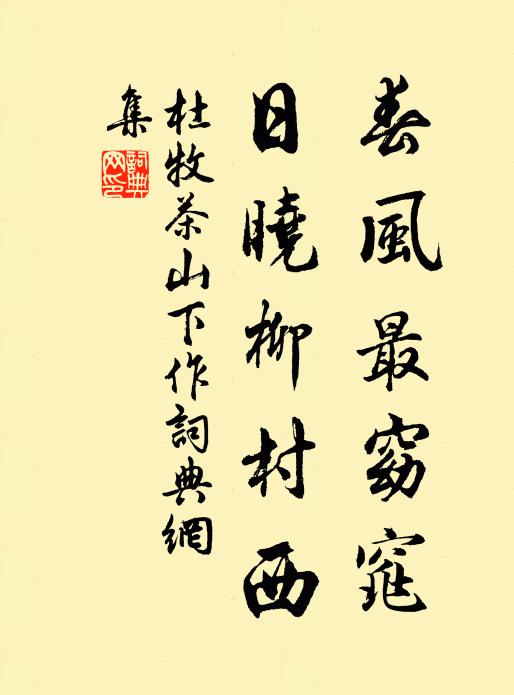 春風最窈窕
日曉柳村西
杜牧茶山下作詞典網
集
詞典網印